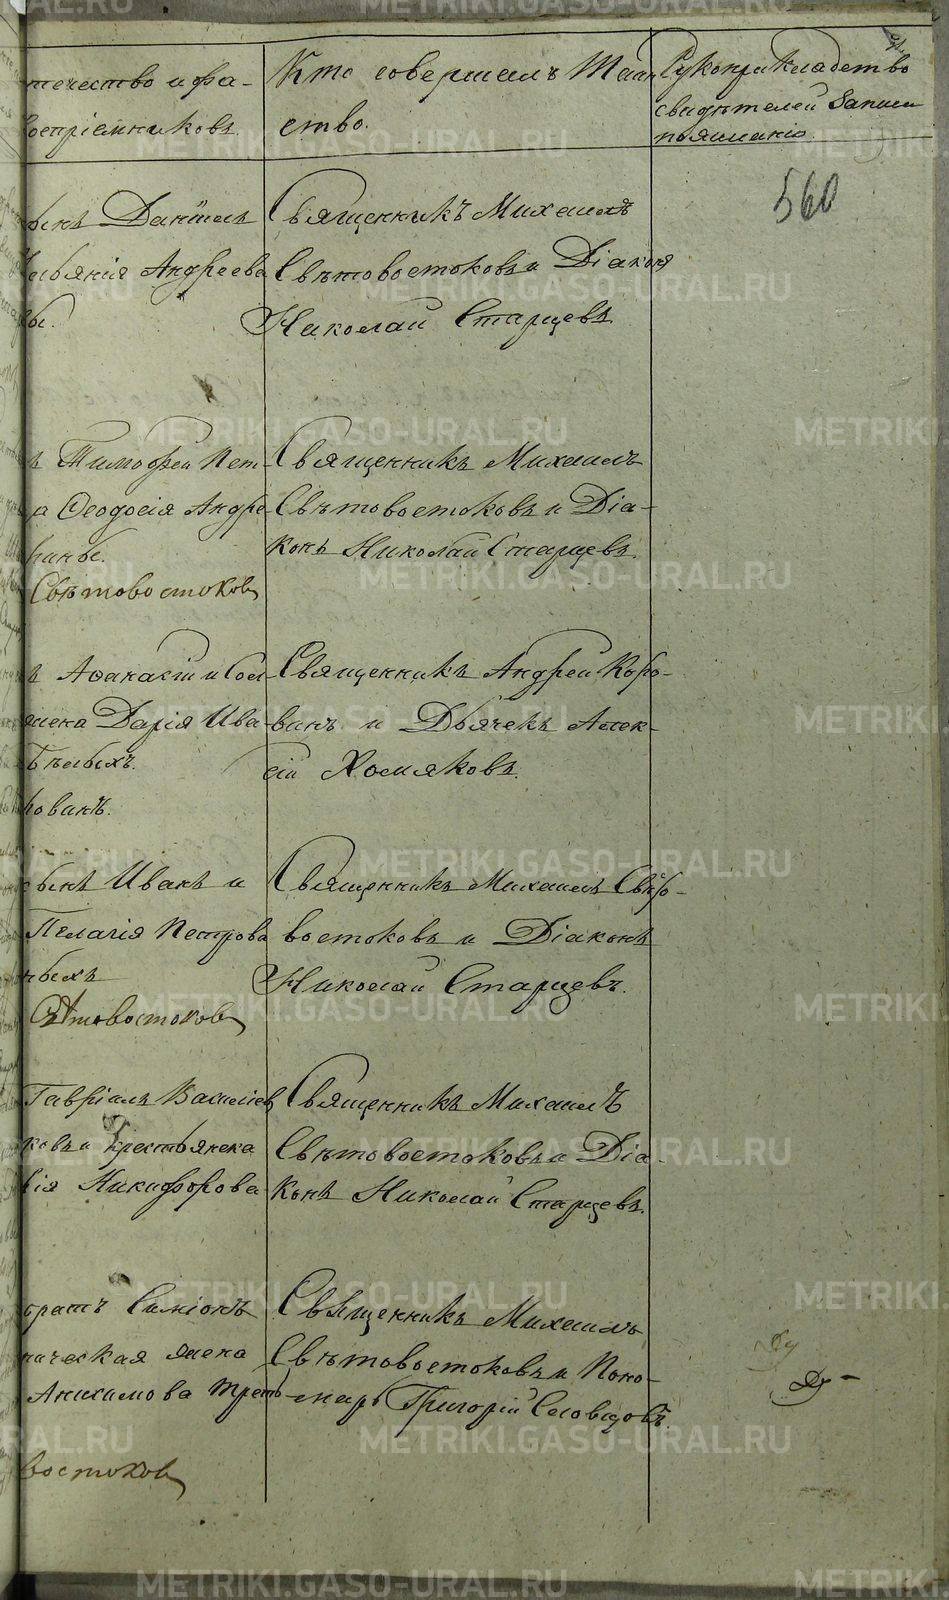 течество и фа-
воспріемниковъ.
Кто совершалъ Таин-
ство.
Рукоприкладство
свидѣтелей записи
560
сынъ Даніилъ
Андреева
Священникъ Михаилъ
Свѣтовостоковъ и Діаконъ
Николай Старцевъ
Тимофей Пет-
Ѳеодосія Андре-
Свѣтовостоковъ
Священникъ Михаилъ
Свѣтовостоковъ и Діа-
конъ Николай Старцевъ.
Аѳанасій и Сол-
Дарія Ива-
Бѣлыхъ.
рованъ.
Священникъ Андрей Коро-
ванъ и Дьячекъ Алек-
сій Хомяковъ.
сынъ Иванъ и
Пелагія Петрова
ныхъ
Свѣтовостоковъ
Священникъ Михаилъ Свѣто-
востоковъ и Діаконъ
Николай Старцевъ.
Гавріилъ Василіев
ковъ и крестьянска
Никифорова
Священникъ Михаилъ
Свѣтовостоковъ и Діа-
конъ Николай Старцевъ.
братъ Симіонъ
ническая жена
Анисимова Треть
востоковъ
Священникъ Михаилъ
Свѣтовостоковъ и Поно-
марь Григорій Словцовъ.
METRIKI.GASO-URAL.RU